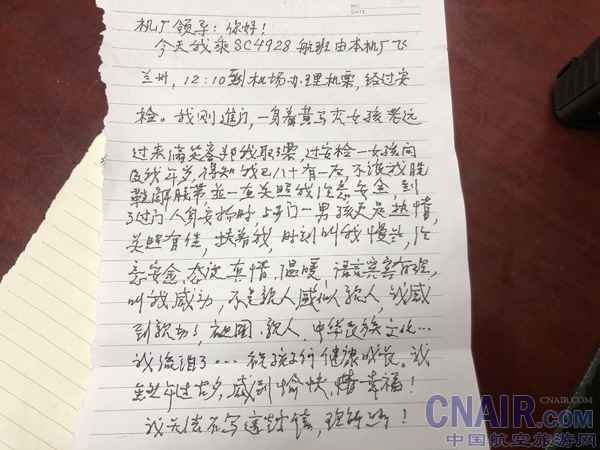 机厂领导：你好！
今天我乘SC4928航班由本机厂飞
兰州，12:10到机场办理机票，经过安
检。我刚进门，一身着黄马夹女孩老远
过来满笑容帮我取了票，过安检一女孩问
及我年岁，得知我已八十有一在，不让我脱
鞋解腰带，并一直关照我注意安全，到
了过门人身安检时，5号门一男孩更是热情，
关照有佳，扶着我，时刻叫我慢点，注
意安全，态度真情，温暖，语言
叫我感动，不是亲人感似人亲人，我感
到亲切！祖国、亲人、中华民族文化…
我流泪了…祝孩子们健康成长。我
虽然年过古夕，感到愉快，情幸福！
我无法不写这封信，
NO.
DATE
CNAIR.COM
CNAIR.COM
中国航空旅游网